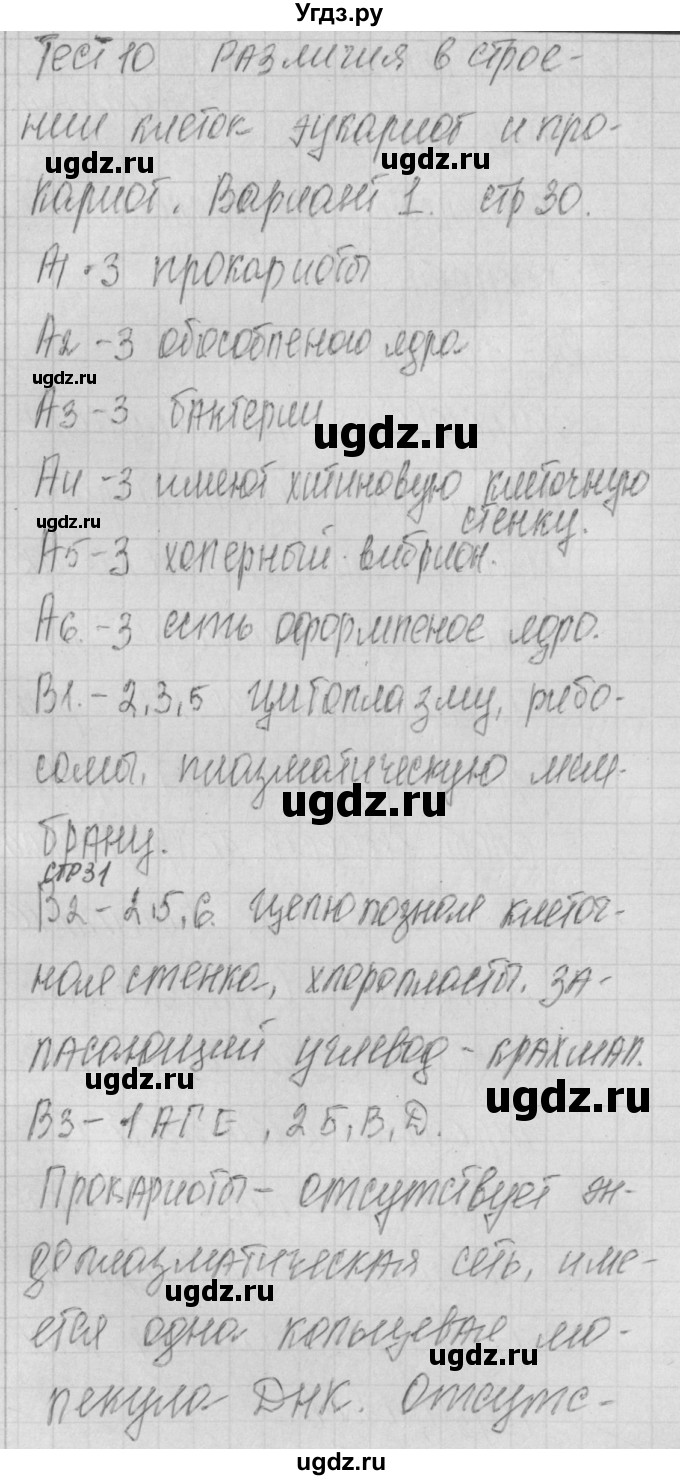 Угдз.ру
Тест 10 Различия в строе-
нии клеток эукариот и про-
ugdz.ru ugdz.ru
кариот. Вариант 1. стр 30.
А1.3 прокариоты
А2-3 обособленого ядра
ugdz.ru
А3-3 бактерии
ugdz.ru
А4-3 имеют хитиновую клеточную
стенку.
ugdz.ru
А5-3 хоперный вибрион.
А6.-3 есть оформленое ядро.
В1.-2,3,5 цитоплазму, рибо-
сомы, плазматическую мем-
ugdz.ru
брану.
стр31
В2-2,5,6. Целюлозная клеточ-
ная стенка, хлоропласты. за-
пасающий углевод-крахмал.
ugdz.ru ugdz.ru
В3-1АГЕ, 2Б,В,Д.
Прокариоты-отсутствует эн-
доплазматическая сеть, име-
ugdz.ru
ется одна кольцевая мо-
ugdz.ru
лекула ДНК. Отсутс-
ugdz.ru